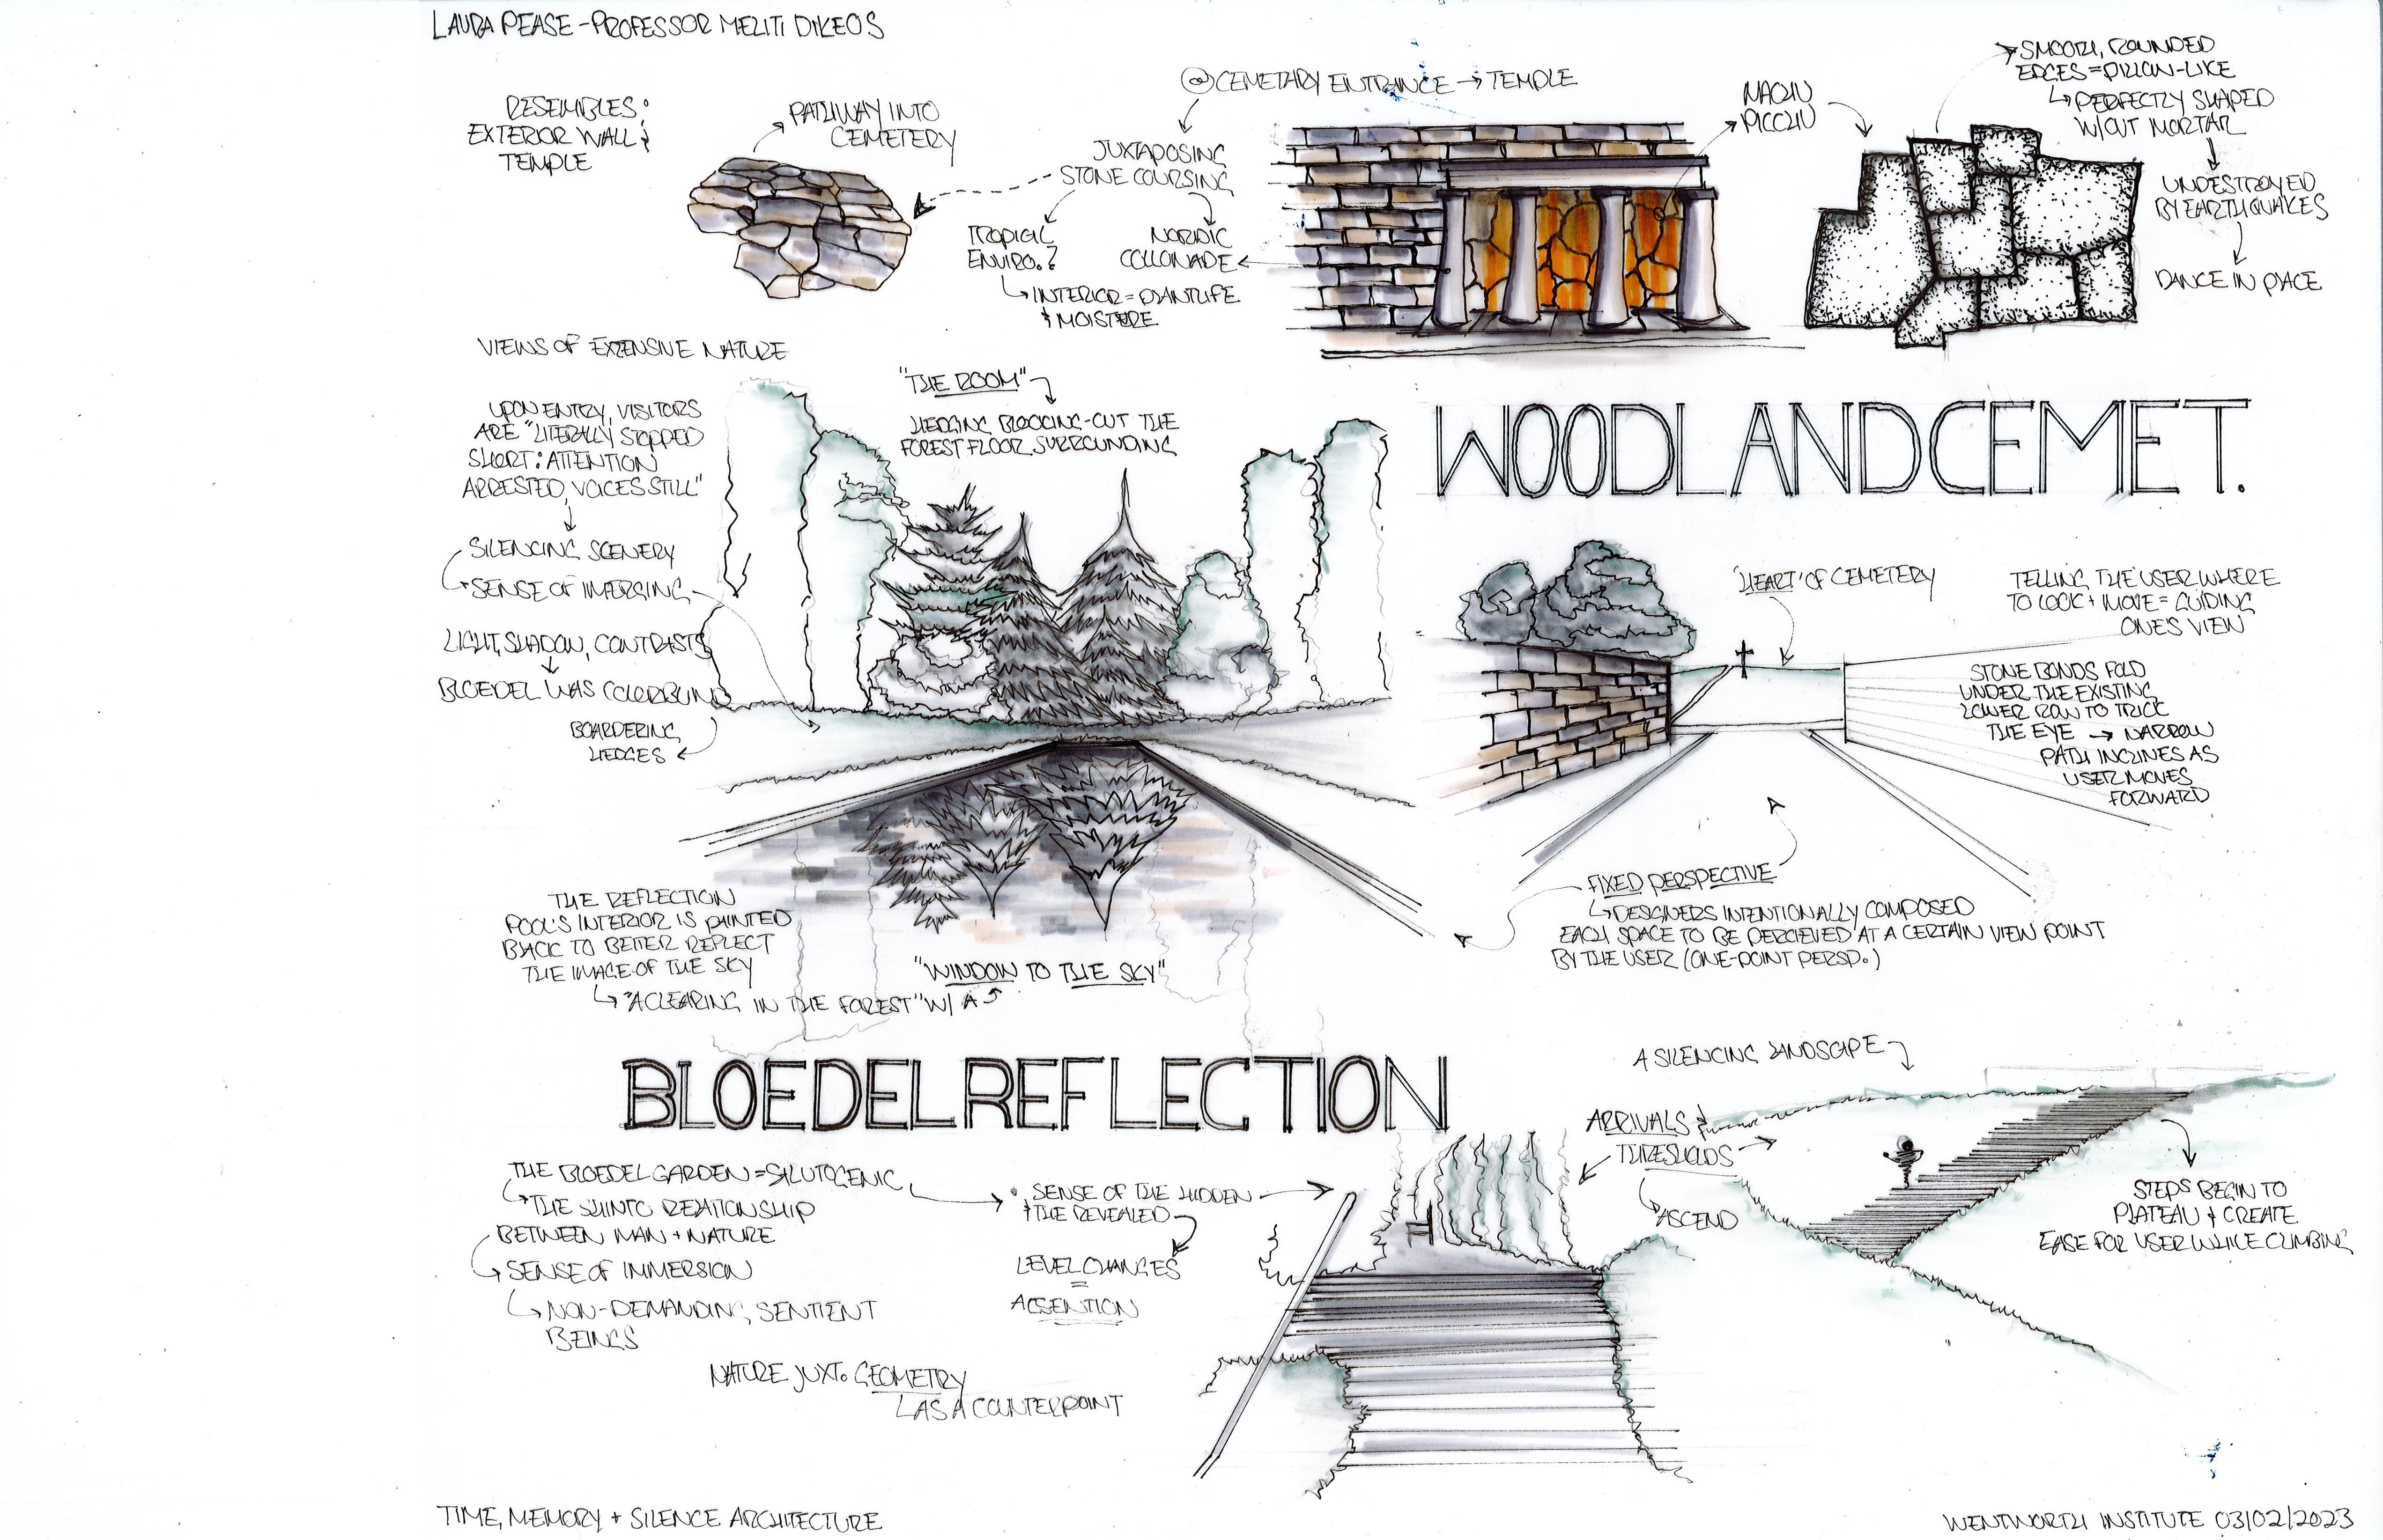 LAURA PEASE - PROFESSOR MELITI DIKEOS
RESEMBLES:
EXTERIOR WALL &
TEMPLE
PATHWAY INTO
CEMETERY
@ CEMETARY ENTRANCE → TEMPLE
JUXTAPOSING
STONE COURSING
TROPICAL
ENVIRO.?
↳ INTERIOR = PLANTLIFE
& MOISTURE
NORDIC
COLLONADE
MACHU
PICCHU
SMOOTH, ROUNDED
EDGES = PILLOW-LIKE
↳ PERFECTLY SHAPED
W/OUT MORTAR
UNDESTROYED
BY EARTHQUAKES
DANCE IN PLACE
VIEWS OF EXTENSIVE NATURE
UPON ENTRY, VISITORS
ARE "LITERALLY STOPPED
SHORT: ATTENTION
ARRESTED, VOICES STILL"
SILENCING SCENERY
SENSE OF IMERGING
LIGHT, SHADOW, CONTRASTS
BLOEDEL WAS COLORBLIND
BOARDERING
HEDGES
"THE ROOM"
HEDGING BLOCKING-OUT THE
FOREST FLOOR SURROUNDING
WOODLAND CEMET.
'HEART' OF CEMETERY
TELLING THE USER WHERE
TO LOOK + MOVE = GUIDING
ONE'S VIEW
STONE BONDS FOLD
UNDER THE EXISTING
LOWER ROW TO TRICK
THE EYE → NARROW
PATH INCLINES AS
USER MOVES
FORWARD
FIXED PERSPECTIVE
↳ DESIGNERS INTENTIONALLY COMPOSED
EACH SPACE TO BE PERCIEVED AT A CERTAIN VIEW POINT
BY THE USER (ONE-POINT PERSP.)
THE REFLECTION
POOL'S INTERIOR IS PAINTED
BACK TO BETTER REFLECT
THE IMAGE OF THE SKY
↳ "A CLEARING IN THE FOREST" W/ A
"WINDOW TO THE SKY"
BLOEDEL REFLECTION
THE BLOEDEL GARDEN = SALUTOGENIC
THE SHINTO RELATIONSHIP
BETWEEN MAN + NATURE
SENSE OF IMMERSION
NON-DEMANDING, SENTIENT
BEINGS
SENSE OF THE HIDDEN
& THE REVEALED
LEVEL CHANGES
=
ACSENTION
NATURE JUXT. GEOMETRY
AS A COUNTERPOINT
A SILENCING LANDSCAPE
ARRIVALS &
THRESHOLDS
ASCEND
STEPS BEGIN TO
PLATEAU & CREATE
EASE FOR USER WHILE CLIMBING
TIME, MEMORY + SILENCE ARCHITECTURE
WENTWORTH INSTITUTE 03/02/2023